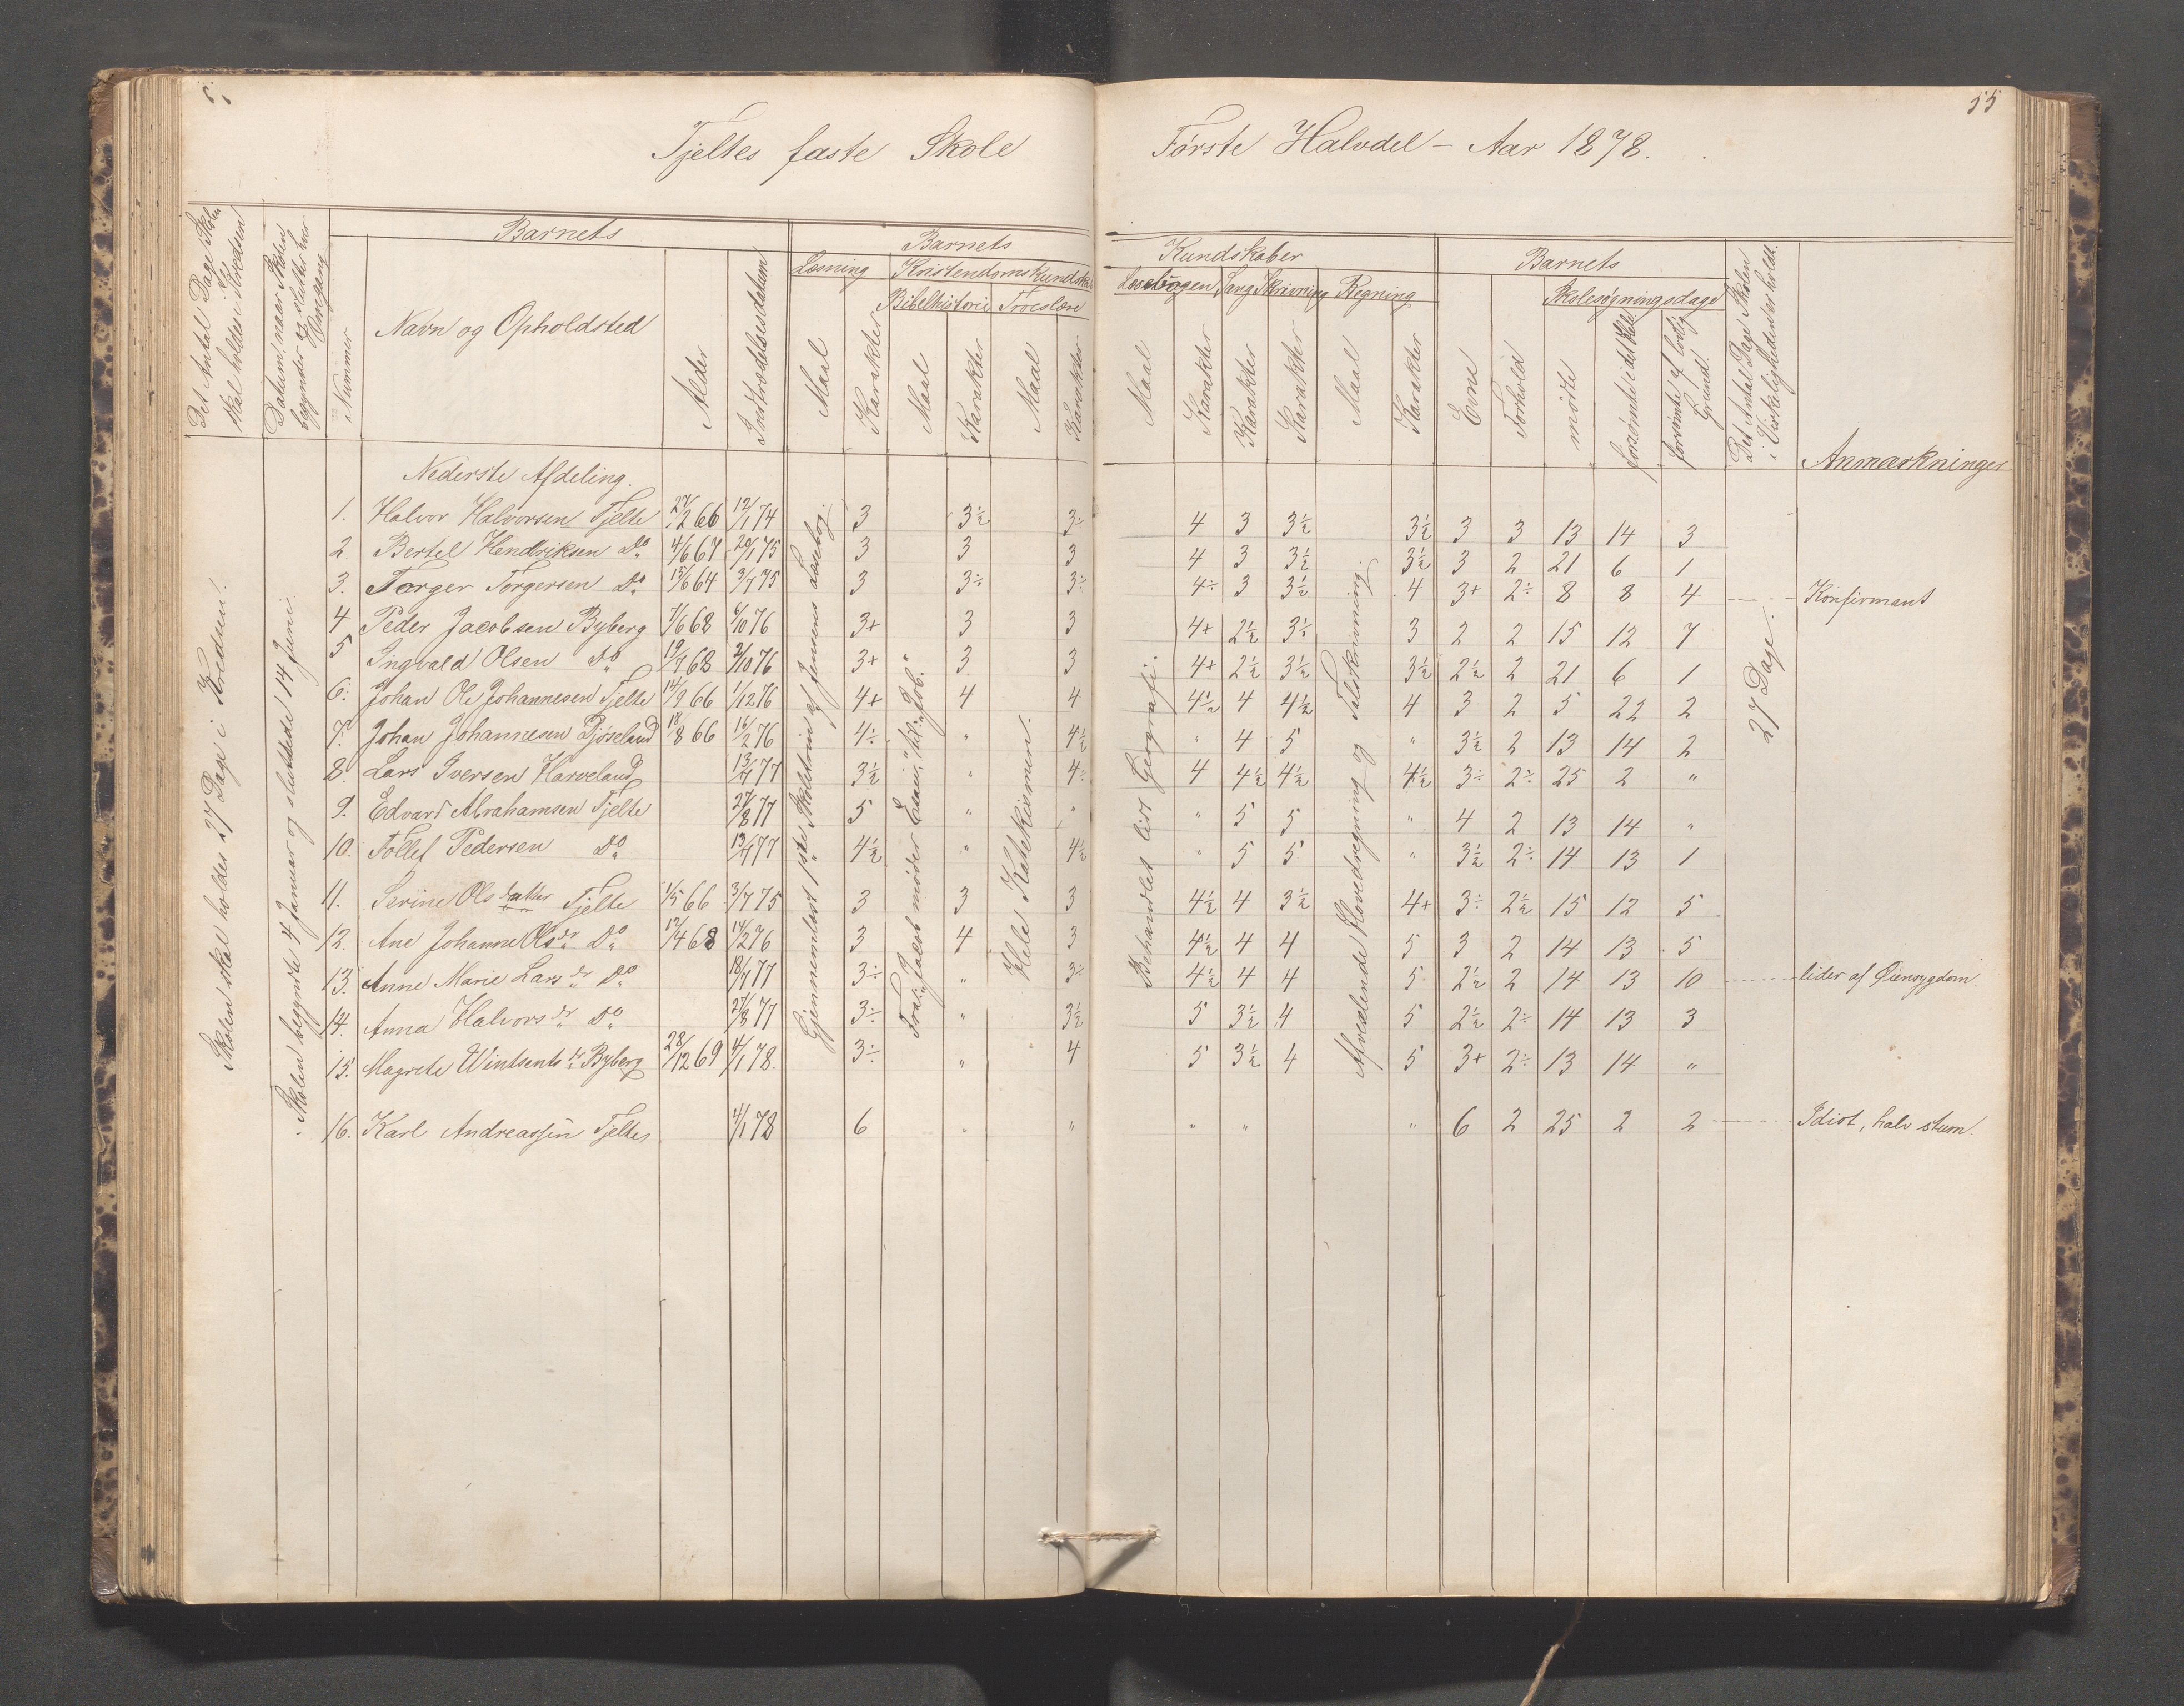 55
Tjeltes faste Skole
Første Halvdel – Aar 1878.
Det Antal Dage Skolen skal holdes i Kredsen
Datum, naar Skolen begynder og slutter hver Omgang
Nummer
Barnets
Navn og Opholdsted
Alder
Indtrædelsesdatum
Barnets
Kundskaber
Læsning
Maal
Karakter
Kristendomskundskab
Bibelhistorie
Maal
Karakter
Troeslære
Maal
Karakter
Læsebogen
Maal
Karakter
Sang
Karakter
Skrivning
Karakter
Regning
Maal
Karakter
Barnets
Evne
Forhold
Skolesøgningsdage
mødte
forsømte i det Hele
forsømte af lovlig Grund.
Det Antal Dage Skolen i Virkeligheden er holdt.
Anmærkninger
Skolen skal holdes 27 Dage i Kredsen!
Skolen begyndte 4 Januar og sluttede 14 Juni.
Gjennemlæst 1ste Skoletrin af Jensens Læsebog.
Fra: "Jacob møder Esau," til: "Job."
Hele Katekismen.
Behandlet lidt Geografi.
Afvexlende Hovedregning og Talskrivning.
27 Dage.
Nederste Afdeling.
1. Halvor Halvorsen Tjelte 27/2 66 12/1 74 3 3½ 3÷ 4 3 3½ 3½ 3 3 13 14 3
2. Bertel Hendriksen Do 4/6 67 20/1 75 3 3 3 4 3 3½ 3½ 3 2 21 6 1
3. Torger Torgersen Do 15/6 64 3/7 75 3 3÷ 3÷ 4÷ 3 3½ 4 3+ 2÷ 8 8 4 Konfirmant
4 Peder Jacobsen Byberg 7/6 68 6/10 76 3+ 3 3 4+ 2½ 3½ 3 2 2 15 12 7
5 Ingvald Olsen Do 19/7 68 2/10 76 3+ 3 3 4+ 2½ 3½ 3½ 2½ 2 21 6 1
6. Johan Ole Johannesen Tjelte 14/9 66 1/12 76 4+ 4 4 4½ 4 4½ 4 3 2 5 22 2
7. Johan Johannesen Bjøseland 18/8 66 16/2 76 4÷ " 4½ " 4 5 " 3½ 2 13 14 2
8 Lars Iversen Harveland 13/7 77 3½ " 4÷ 4 4½ 4½ 4½ 3÷ 2÷ 25 2 "
9. Edvard Abrahamsen Tjelte 27/8 77 5 " " " 5 5 " 4 2 13 14 "
10. Tollef Pedersen Do 13/7 77 4½ " 4½ " 5 5 " 3½ 2÷ 14 13 1
11. Serine Olsdatter Tjelte 1/5 66 3/7 75 3 3 3 4½ 4 3½ 4+ 3÷ 2½ 15 12 5
12. Ane Johanne Olsdr Do 17/4 68 14/2 76 3 4 3 4½ 4 4 5 3 2 14 13 5
13. Anne Marie Larsdr Do 18/7 77 3÷ " 3÷ 4½ 4 4 5 2½ 2 14 13 10 lider af Øiensygdom.
14. Anna Halvorsdr Do 27/8 77 3÷ " 3½ 5 3½ 4 5 2½ 2÷ 14 13 3
15. Magrete Wintsentsdr Byberg 28/12 69 4/1 78. 3÷ " 4 5 3½ 4 5 3+ 2÷ 13 14 "
16. Karl Andreassen Tjelte 4/1 78 6 " " " " " 6 2 25 2 2 Idiot, halv stum.